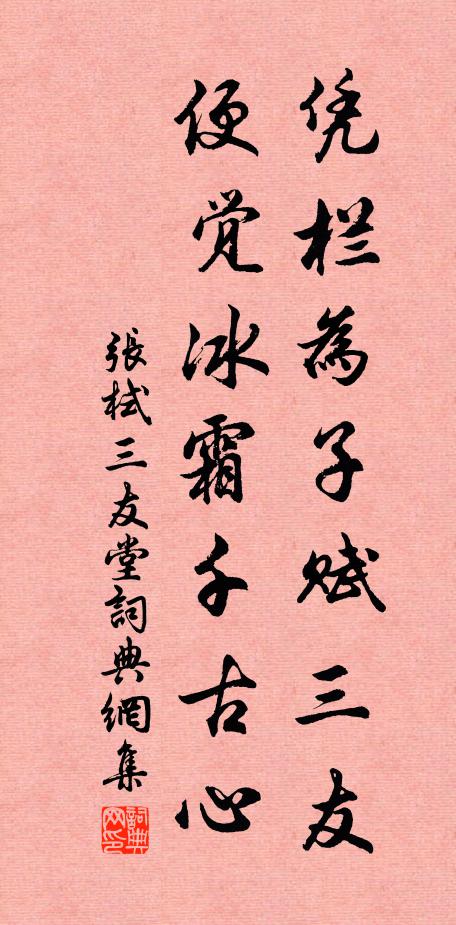 凭栏為子赋三友
便觉冰霜千古心
張栻三友堂詞典網集
詞典网印